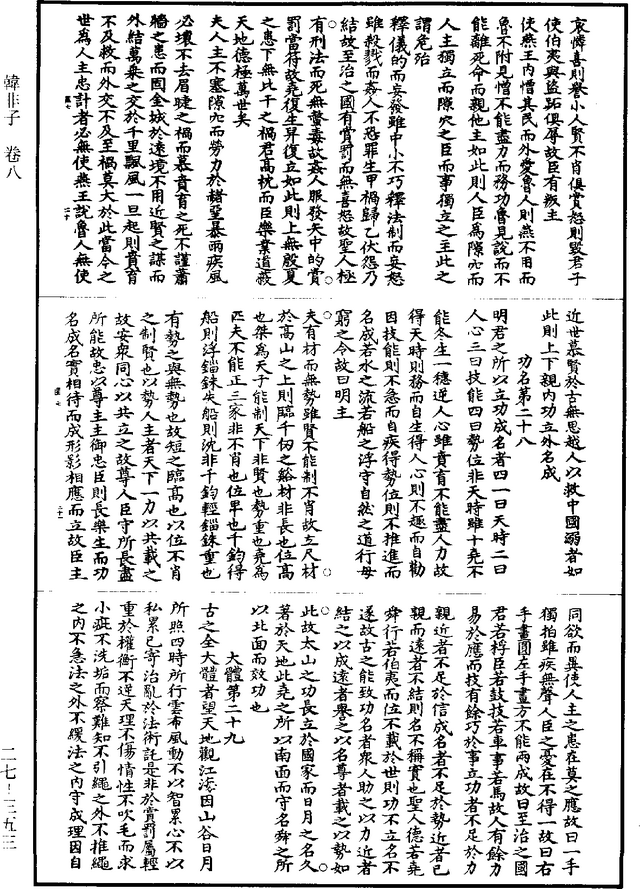 韓非子 卷八
哀憐喜則譽小人賢不肖俱賞怒則毀君子
使伯夷與盜跖俱辱故臣有叛主
使燕王內憎其民而外愛魯人則燕不用而
魯不附見憎不能盡力而務功魯見說而不
能離死命而親他主如此則人臣為隙穴而
人主獨立而隙穴之臣而事獨立之主此之
謂危殆
釋儀的而妄發雖中小不巧釋法制而妄怒
雖殺戮而姦人不恐罪生甲禍歸乙伏怨乃
結故至治之國有賞罰而無喜怒故聖人極
有刑法而死無螫毒故姦人服發矢中的賞
罰當符故堯復生羿復立如此則上無殷夏
之患下無比干之禍君高枕而臣樂業道蔽
天地德極萬世矣
夫人主不塞隙穴而勞力於赭堊暴雨疾風
必壞不去眉睫之禍而慕賁育之死不謹蕭
牆之患而固金城於遠境不用近賢之謀而
外結萬乘之交於千里飄風一旦起則賁育
不及救而外交不及至禍莫大於此當今之
世為人主忠計者必無使燕王說魯人無使
近世慕賢於古無思越人以救中國溺者如
此則上下親內功立外名成
功名第二十八
明君之所以立功成名者四一曰天時二曰
人心三曰技能四曰勢位非天時雖十堯不
能冬生一穗逆人心雖賁育不能盡人力故
得天時則務而自生得人心則不趣而自勸
因技能則不急而自疾得勢位則不推進而
名成若水之流若船之浮守自然之道行毋
窮之令故曰明主
夫有材而無勢雖賢不能制不肖故立尺材
於高山之上則臨千仞之谿材非長也位高
也桀為天子能制天下非賢也勢重也堯為
匹夫不能正三家非不肖也位卑也千鈞得
船則浮錙銖失船則沈非千鈞輕錙銖重也
有勢之與無勢也故短之臨高也以位不肖
之制賢也以勢人主者天下一力以共載之
故安衆同心以共立之故尊人臣守所長盡
所能故忠以尊主主御忠臣則長樂生而功
名成名實相待而成形影相應而立故臣主
同欲而異使人主之患在莫之應故曰一手
獨拍雖疾無聲人臣之憂在不得一故曰右
手畫圓左手畫方不能兩成故曰至治之國
君若桴臣若鼓技若車事若馬故人有餘力
易於應而技有餘巧於事立功者不足於力
親近者不足於信成名者不足於勢近者已
親而遠者不結則名不稱實也聖人德若堯
舜行若伯夷而位不載於世則功不立名不
遂故古之能致功名者衆人助之以力近者
結之以成遠者譽之以名尊者載之以勢如
此故太山之功長立於國家而日月之名久
著於天地此堯之所以南面而守名舜之所
以北面而效功也
大體第二十九
古之全大體者望天地觀江海因山谷日月
所照四時所行雲布風動不以智累心不以
私累己寄治亂於法術託是非於賞罰屬輕
重於權衡不逆天理不傷情性不吹毛而求
小疵不洗垢而察難知不引繩之外不推繩
之內不急法之外不緩法之內守成理因自
二七—三九三